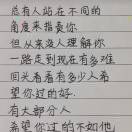 总有人站在不同的
角度来指责你
但从来没人理解你
一路走到现在有多难
回头看看有多少人希
望你过的好.
有大部分人
希望你过的不如他